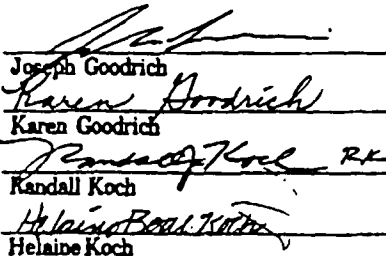 Joseph Goodrich
Karen Goodrich
Karen Goodrich
Randall Koch RK
Randall Koch
Helaine Koch
Helaine Koch